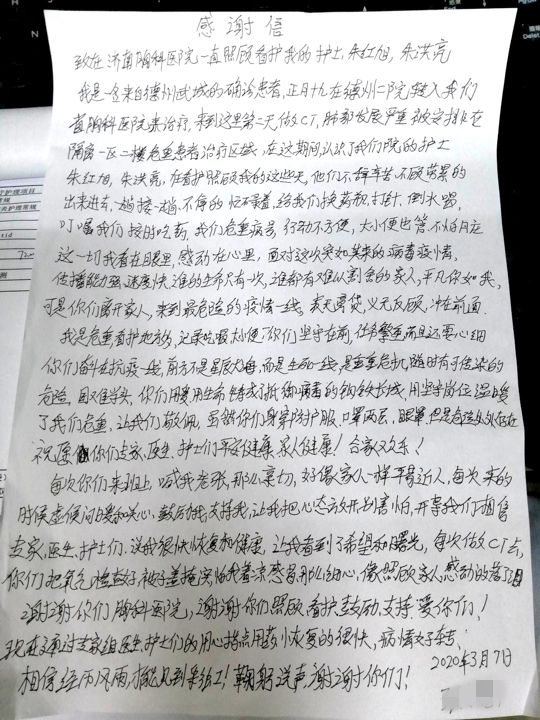 感谢信
致在济南胸科医院一直照顾看护我的护士,朱红旭,朱洪亮
我是一名来自德州武城的确诊患者,正月十九在德州二院转入我们
省胸科医院来治疗,来到这里第二天做CT,肺部发展严重被安排在
隔离一区二楼危重患者治疗区域,在这期间认识了我们院的护士
朱红旭,朱洪亮,在看护照顾我的这些天,他们不辞辛苦不顾劳累的
出来进去,一趟接一趟,不停的忙碌着,给我们换药瓶,打针,倒水喝,
叮嘱我们按时吃药,我们危重病号行动不方便,大小便也管,不怕
这一切我看在眼里,感动在心里,面对这次突如其来的病毒疫情,
传播能力强,速度快,谁的生命只有一次,谁都有难以割舍的家人,平凡你如我,
可是你们离开家人,来到最危险的疫情一线,义无反顾,冲在前面.
我是危重看护地方的,记录吃喝大小便,你们坚守在前,任务繁重而且还要心细
你们奋斗在抗疫一线,前方不是星辰大海,而是生死一线,是重重危机,随时有可传染的
危险,困难当头,你们用爱用生命铸成了抵御病毒的钢铁长城,用坚守岗位温暖
了我们危重,让我们敬佩,虽然你们身穿防护服,口罩两层,眼罩,但是危险处处存在
祝愿你们专家,医生,护士们平安健康,家人健康!合家欢乐!
每次你们来班上,喊我老张,那么亲切,好像家人一样平易近人,每次来的
时候虚侯问暖和关心,鼓励我,支持我,让我把心态放开,别害怕,开导我们相信
专家,医生,护士们.说我很快恢复和健康,让我看到了希望和曙光,每次做CT去,
你们把氧气检查好,被子盖掩实怕我着凉感冒,那么细心,像照顾家人,感动的落了泪
谢谢你们胸科医院,谢谢你们照顾看护鼓励,支持.爱你们!
现在通过专家组医生护士们的用心指点用药,恢复的很快,病情好转.
相信经历风雨,才能见到彩虹!鞠躬说声,谢谢你们!
2020年3月7日